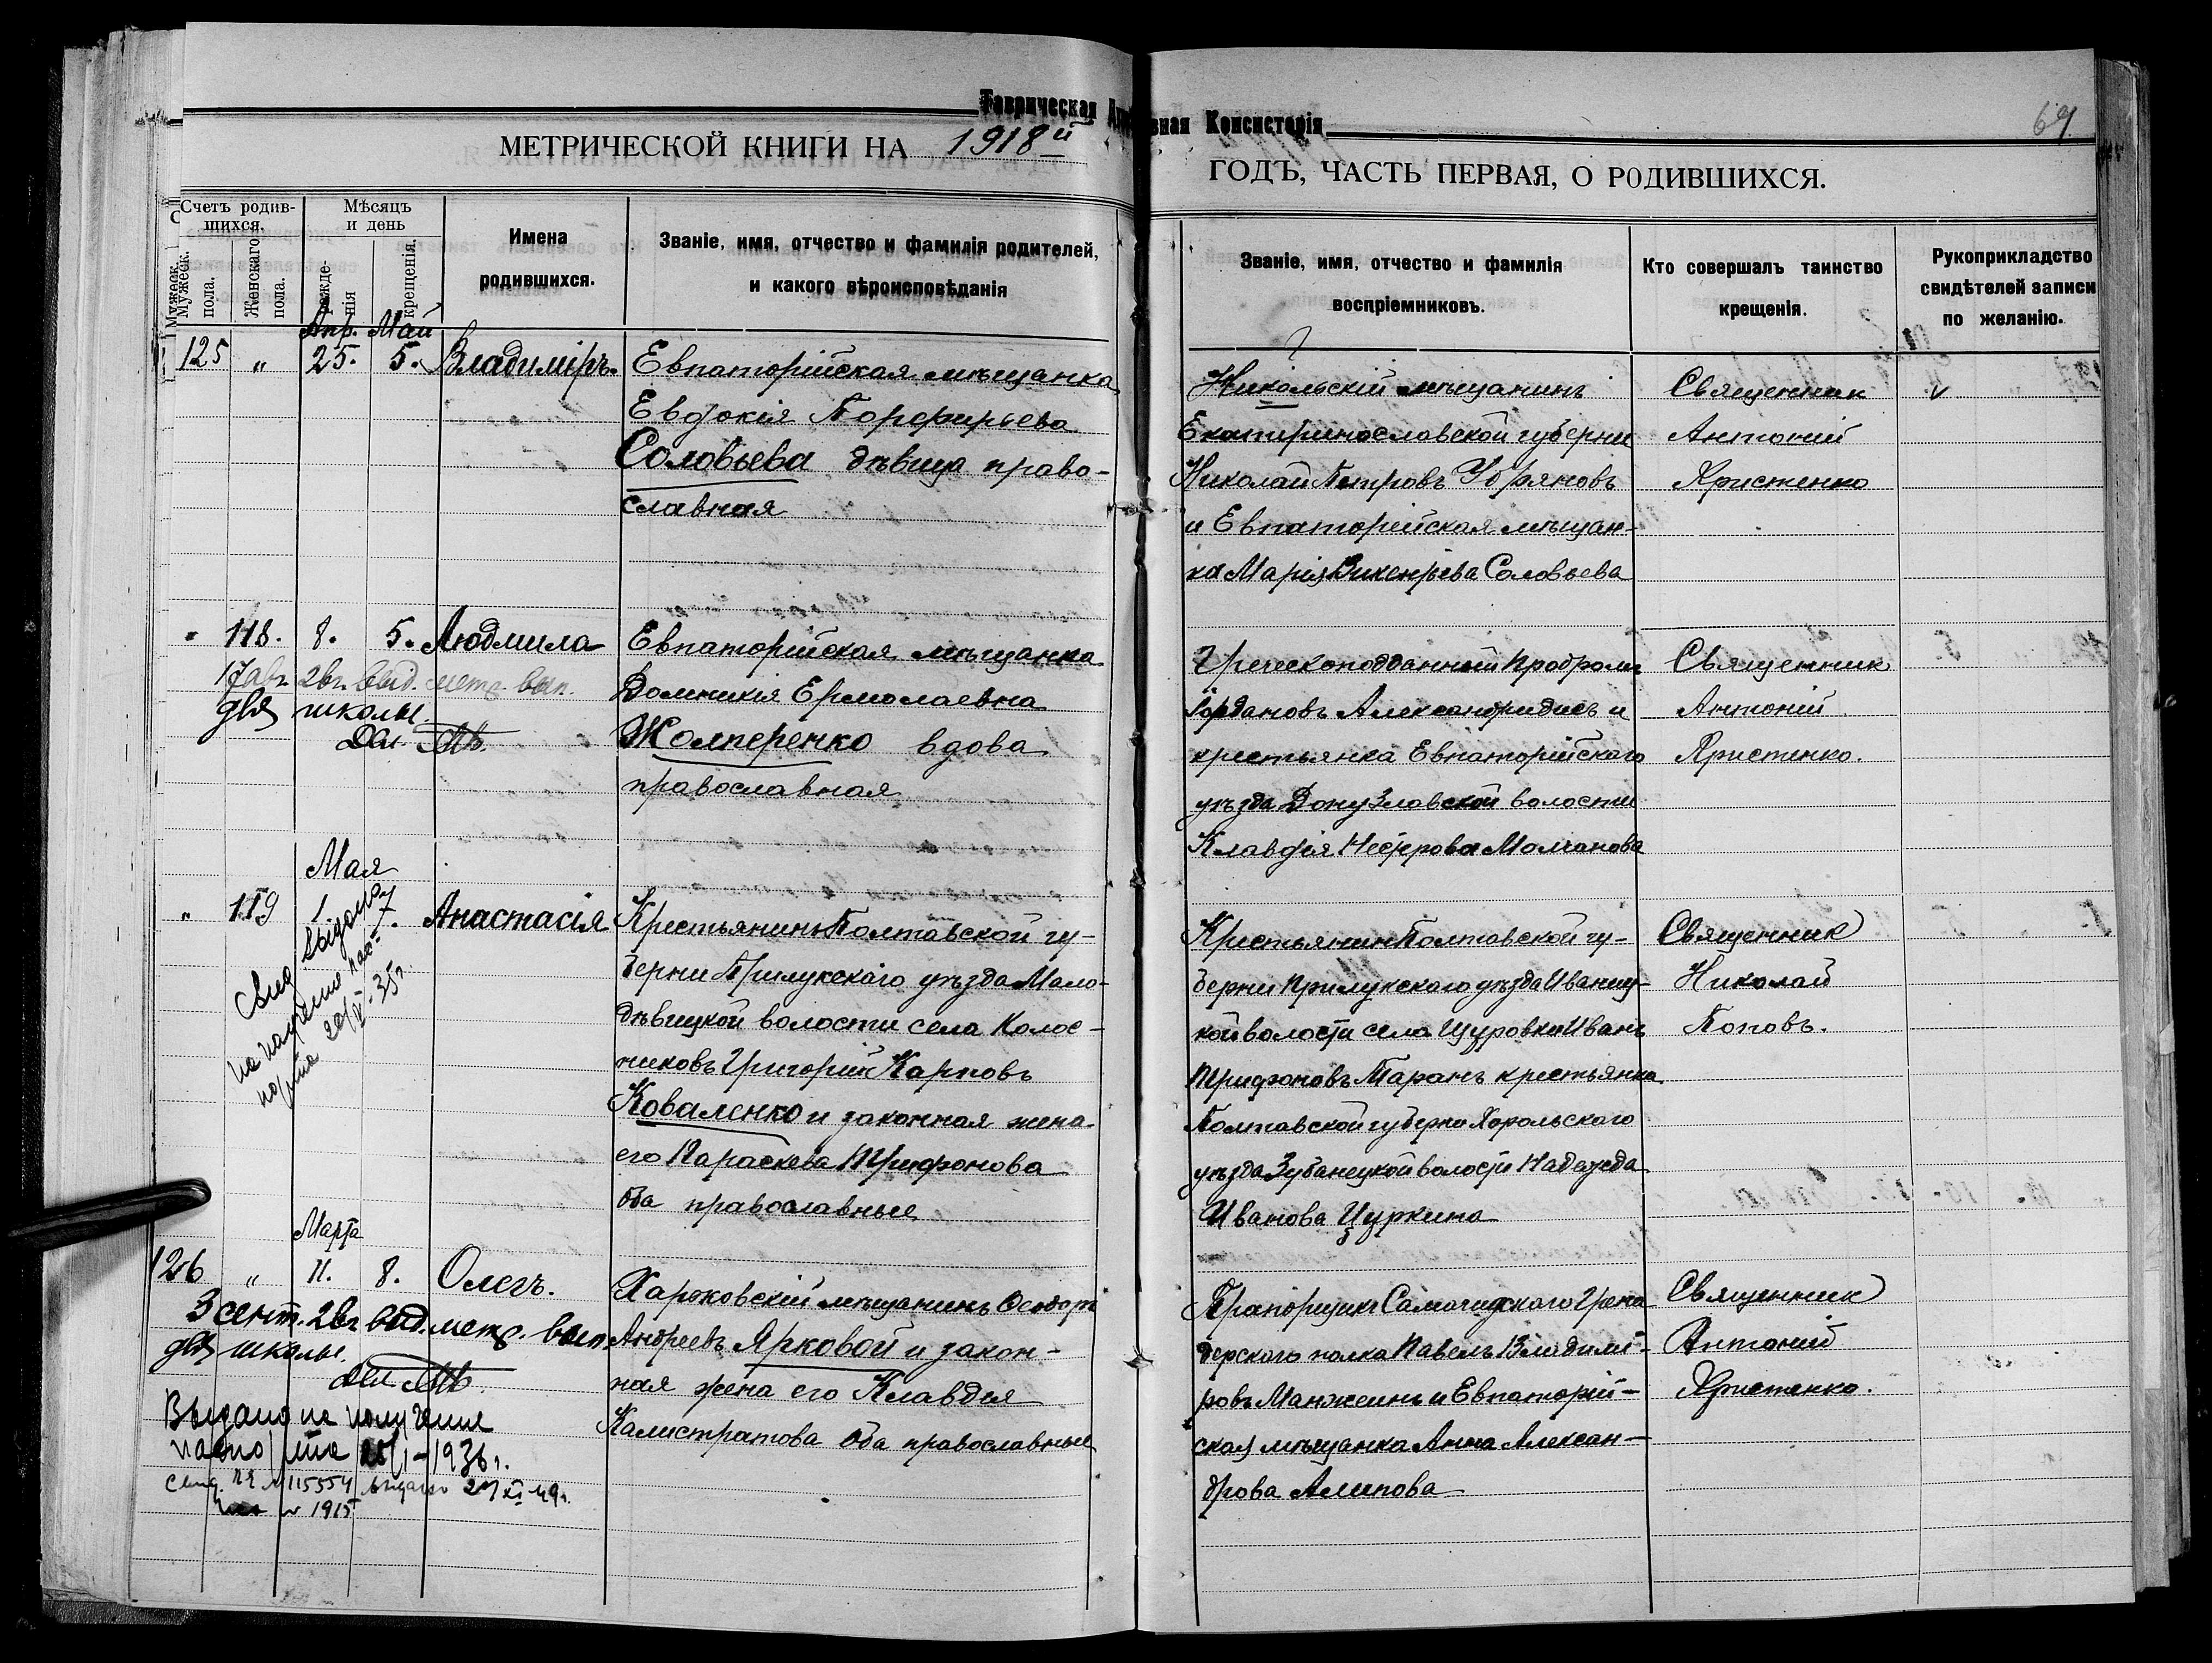 Таврическая
вная Консисторія
69
МЕТРИЧЕСКОЙ КНИГИ НА 1918й
ГОДЪ, ЧАСТЬ ПЕРВАЯ, О РОДИВШИХСЯ.
Счетъ родив-
шихся.
Мужеск.
пола.
Женскаго
пола.
Мѣсяцъ
и день
рожде-
нія
крещенія.
Имена
родившихся.
Званіе, имя, отчество и фамилія родителей,
и какого вѣроисповѣданія
Званіе, имя, отчество и фамилія
воспріемниковъ.
Кто совершалъ таинство
крещенія.
Рукоприкладство
свидѣтелей записи
по желанію.
Апр. Май
125 " 25. 5. Владиміръ.
Евпаторійская мѣщанка
Евдокія Порфирьева
Соловьева дѣвица право-
славная
Никольскій мѣщанинъ
Екатеринославской губерни
Николай Петровъ
и Евпаторійская мѣщан-
ка Марія Викентьева Соловьева
Священник
Антоній
Христенко
" 118. 8. 5. Людмила
17 авг. 26г. выд. метр. вып.
для школы.
Евпаторійская мѣщанка
Домникія Ермолаевна
Жолперенко вдова
православная
Греческоподданный Продромъ
Іордановъ Александридисъ и
крестьянка Евпаторійскаго
уѣзда Донузлавской волости
Клавдія Молчанова
Священник
Антоній
Христенко.
Мая
" 119 1 7. Анастасія
Свид. выдано
на получение пас-
порта 35г.
Крестьянинъ Полтавской гу-
берни Прилукскаго уѣзда Мало-
дѣвицкой волости села Колос-
никовъ Григорій Карповъ
Коваленко и законная жена
его Параскева Трифонова
оба православные
Крестьянин Полтавской гу-
берни Прилукскаго уѣзда Иваниц-
кой волости села Щуровки Иванъ
Трифоновъ Таранъ крестьянка
Полтавской губерни Хорольскаго
уѣзда Зубанецкой волости Надежда
Иванова Цуркина
Священник
Николай
Поповъ.
Марта
126 " 11. 8. Олегъ.
3 сент. 26г. выд. метр. вып.
для школы.
Выдано на получение
паспорта 1936г.
Свид. № 115554 выдано XI 49г.
Харьковскій мѣщанинъ Ѳеодоръ
Андреевъ Ярковой и закон-
ная жена его Клавдія
Калистратова оба православные
Прапорщикъ Самогидскаго Грена
дерскаго полка Павелъ Владими-
ровъ Манжеинъ и Евпаторій-
ская мѣщанка Анна Алексан-
дрова Алипова
Священник
Антоній
Христенко.